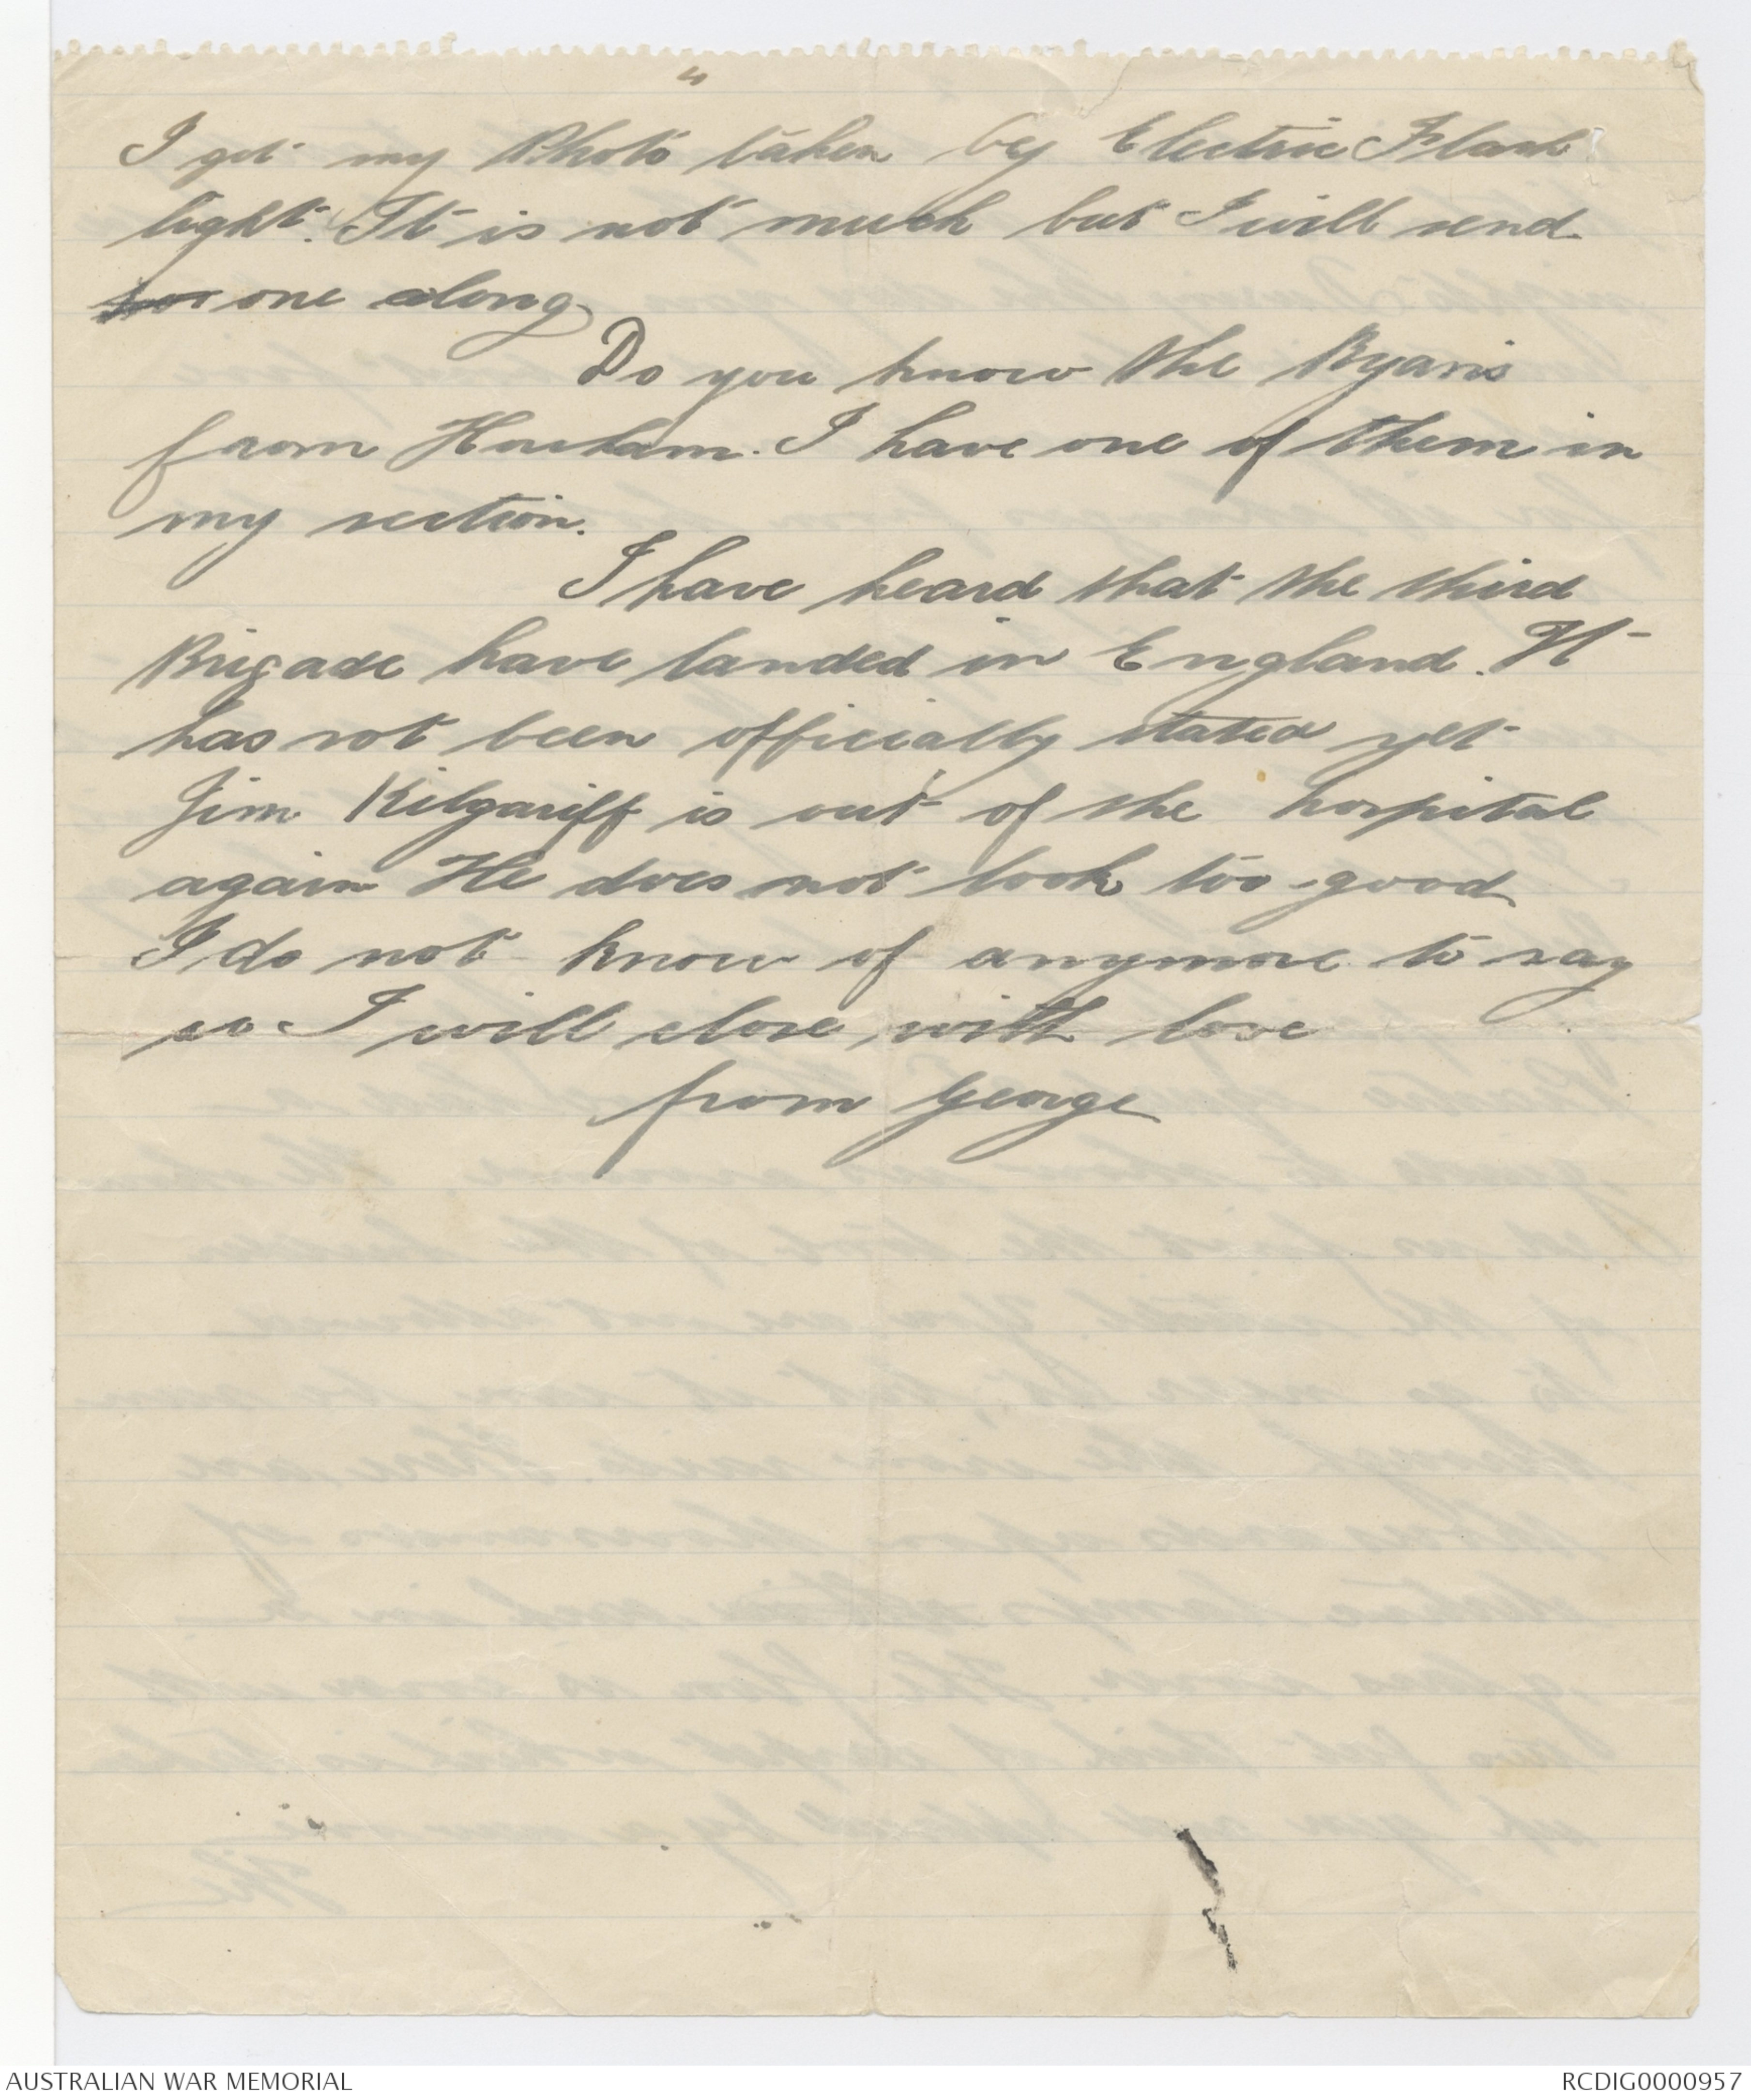 I got my Photo taken by Electric Flash
light. It is not much but I will send
one along
Do you know the Ryan's
from Horsham. I have one of them in
my section.
I have heard that the third
Brigade have landed in England. It
has not been officially stated yet
Jim Kilgariff is out of the hospital
again He does not look too good
I do not know of anymore to say
so I will close, with love
from George
AUSTRALIAN WAR MEMORIAL
RCDIG0000957